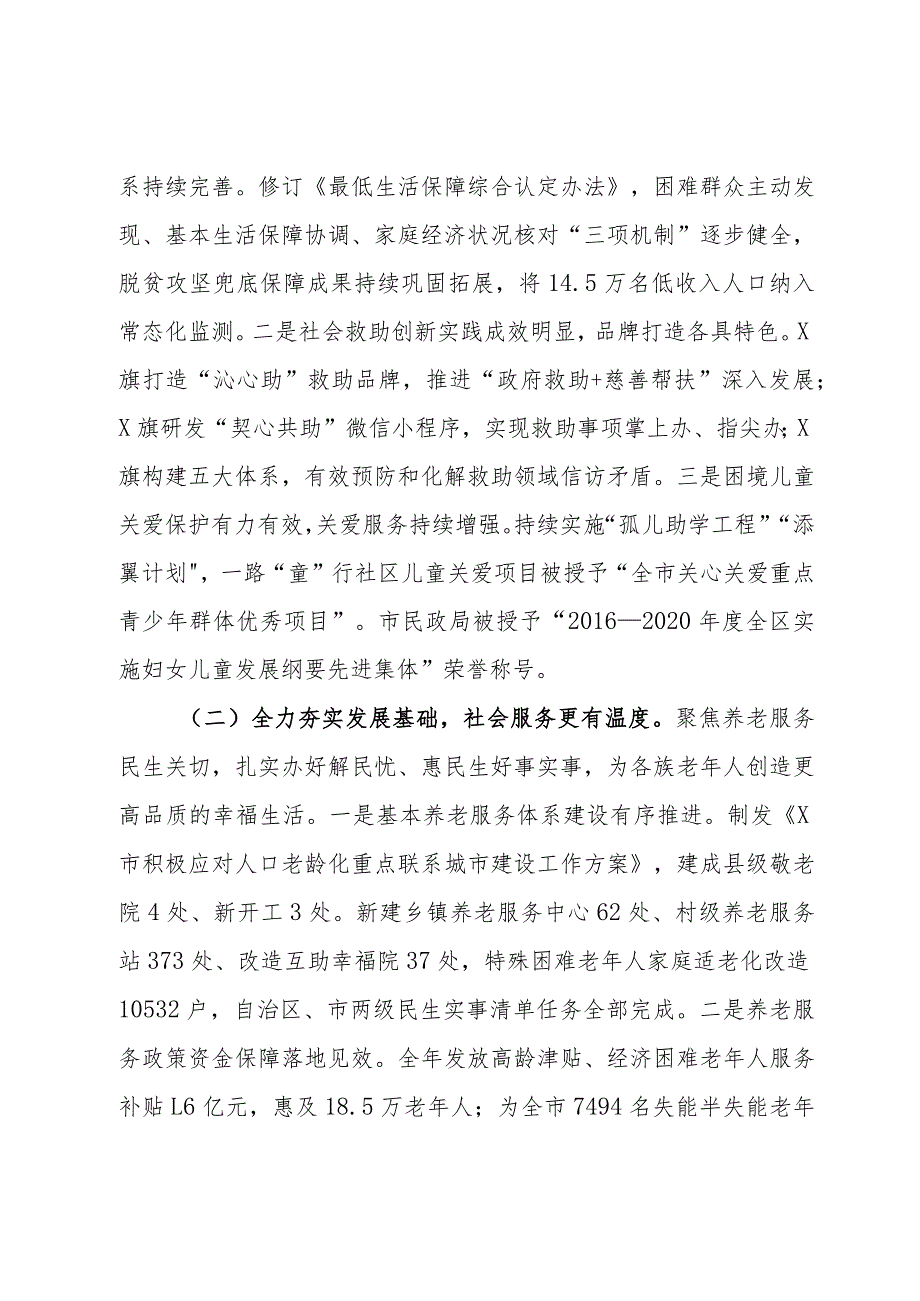 系持续完善。修订《最低生活保障综合认定办法》，困难群众主动发
现、基本生活保障协调、家庭经济状况核对“三项机制”逐步健全，
脱贫攻坚兜底保障成果持续巩固拓展，将 14.5 万名低收入人口纳入
常态化监测。二是社会救助创新实践成效明显，品牌打造各具特色。X
旗打造“沁心助”救助品牌，推进“政府救助+慈善帮扶”深入发展；
X 旗研发“契心共助”微信小程序，实现救助事项掌上办、指尖办；X
旗构建五大体系，有效预防和化解救助领域信访矛盾。三是困境儿童
关爱保护有力有效,关爱服务持续增强。持续实施“孤儿助学工程”“添
翼计划"，一路“童”行社区儿童关爱项目被授予“全市关心关爱重点
青少年群体优秀项目”。市民政局被授予“2016—2020 年度全区实
施妇女儿童发展纲要先进集体”荣誉称号。
（二）全力夯实发展基础，社会服务更有温度。聚焦养老服务
民生关切，扎实办好解民忧、惠民生好事实事，为各族老年人创造更
高品质的幸福生活。一是基本养老服务体系建设有序推进。制发《X
市积极应对人口老龄化重点联系城市建设工作方案》，建成县级敬老
院 4 处、新开工 3 处。新建乡镇养老服务中心 62 处、村级养老服务
站 373 处、改造互助幸福院 37 处，特殊困难老年人家庭适老化改造
10532 户，自治区、市两级民生实事清单任务全部完成。二是养老服
务政策资金保障落地见效。全年发放高龄津贴、经济困难老年人服务
补贴 L6 亿元，惠及 18.5 万老年人；为全市 7494 名失能半失能老年